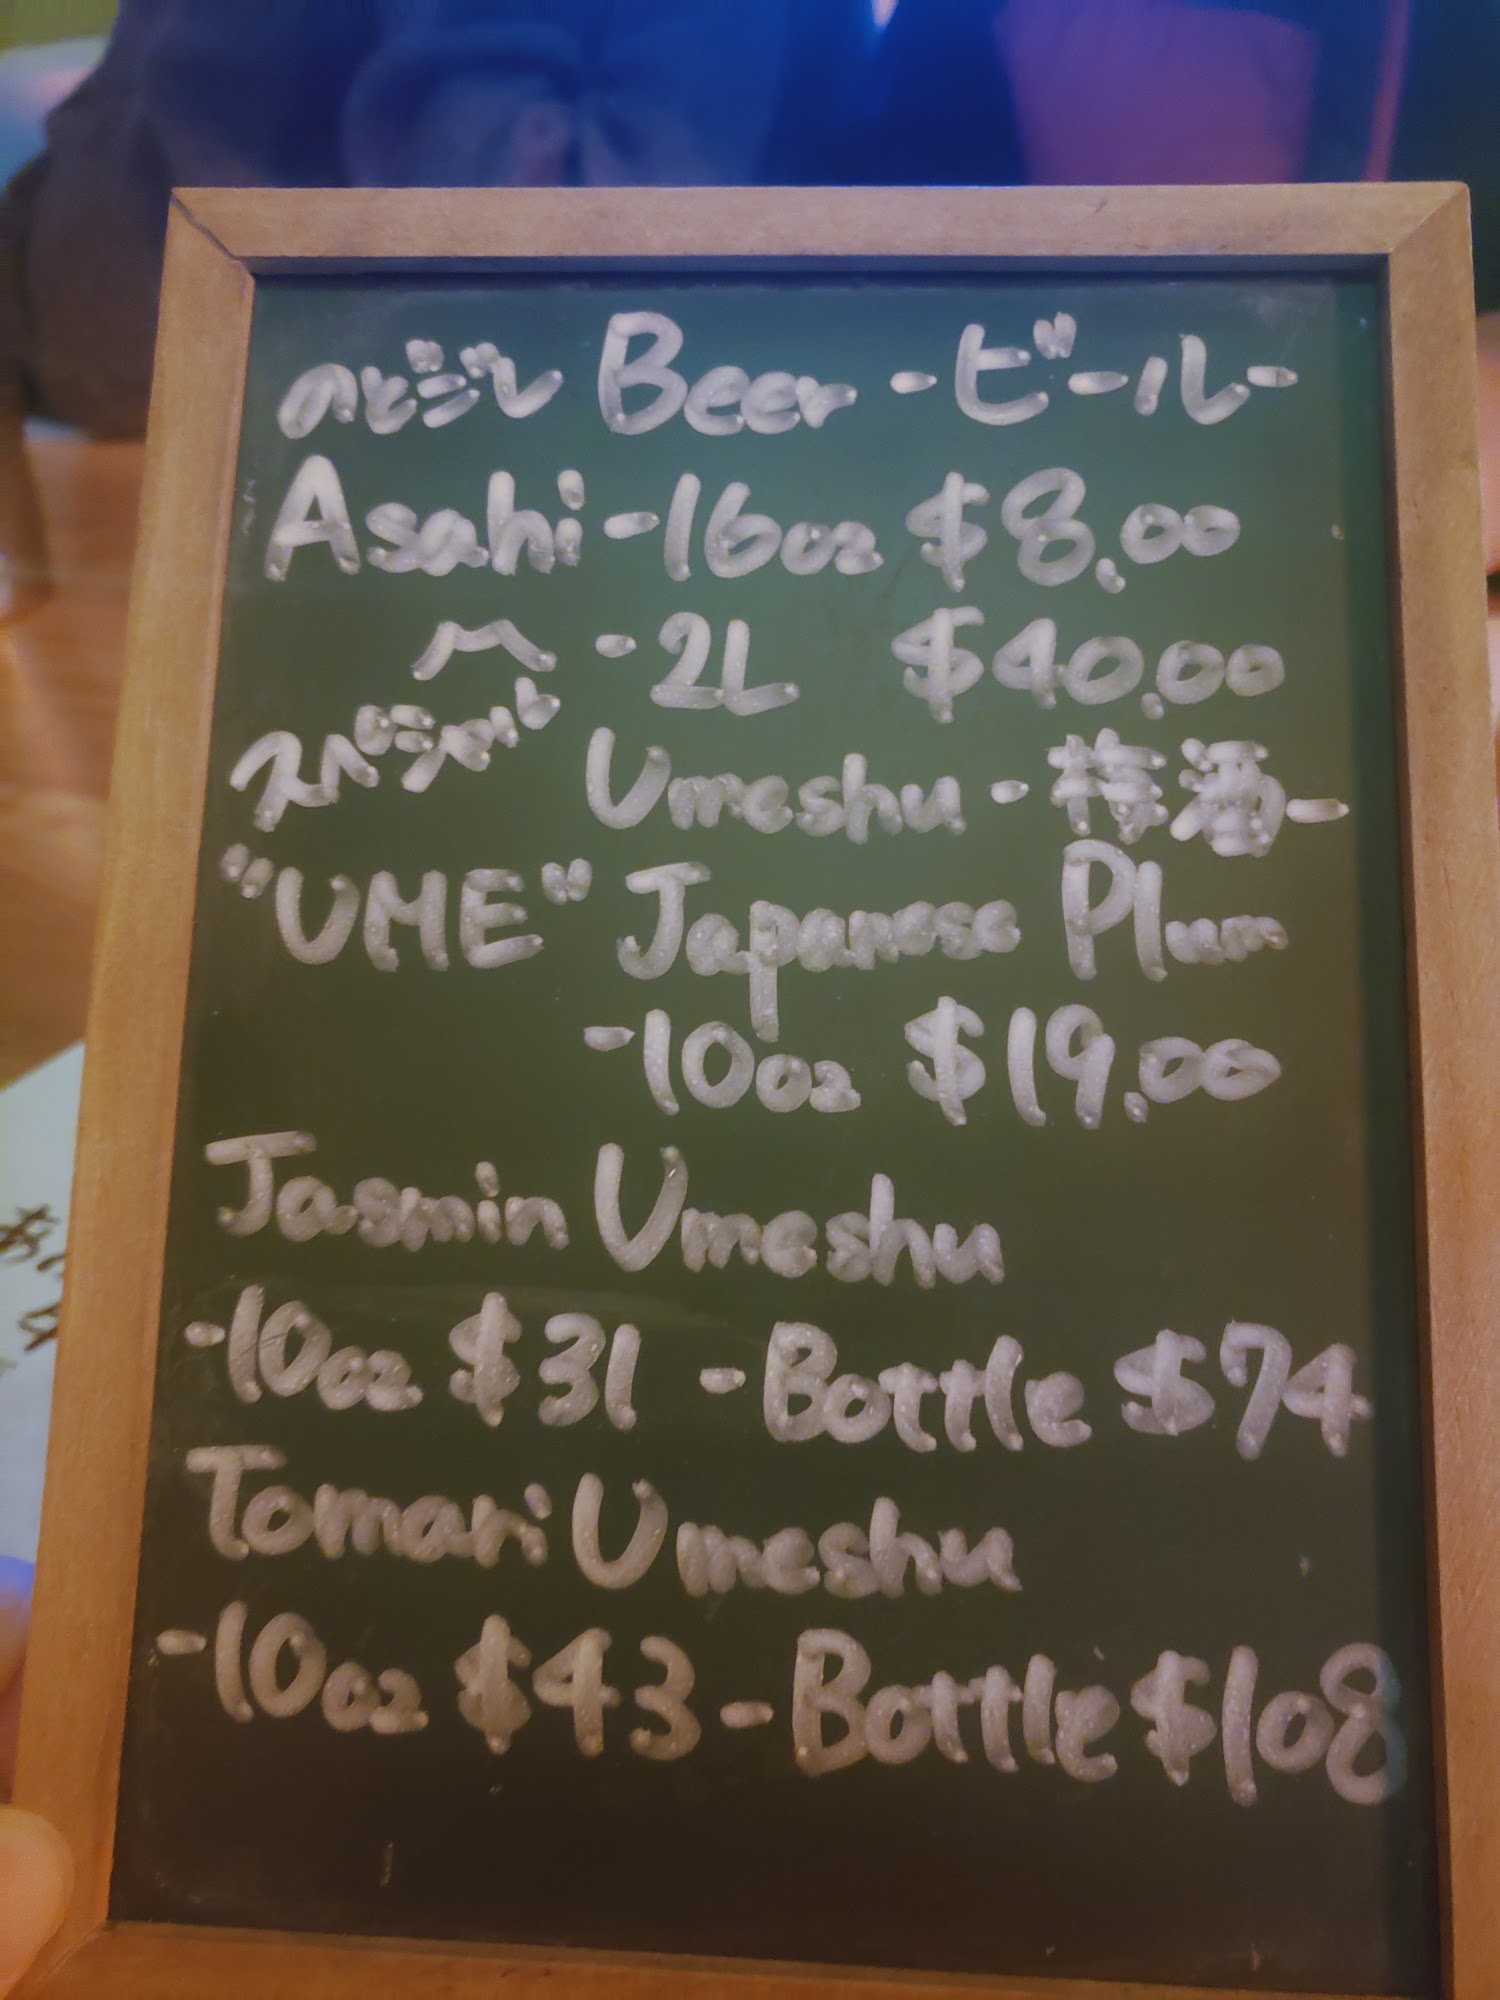 のどごし Beer -ビール-
Asahi -16oz $8.00
〃 -2L $40.00
スペシャル Umeshu -梅酒-
"UME" Japanese Plum
-10oz $19.00
Jasmin Umeshu
-10oz $31 -Bottle $74
Tomari Umeshu
-10oz $43 -Bottle $108